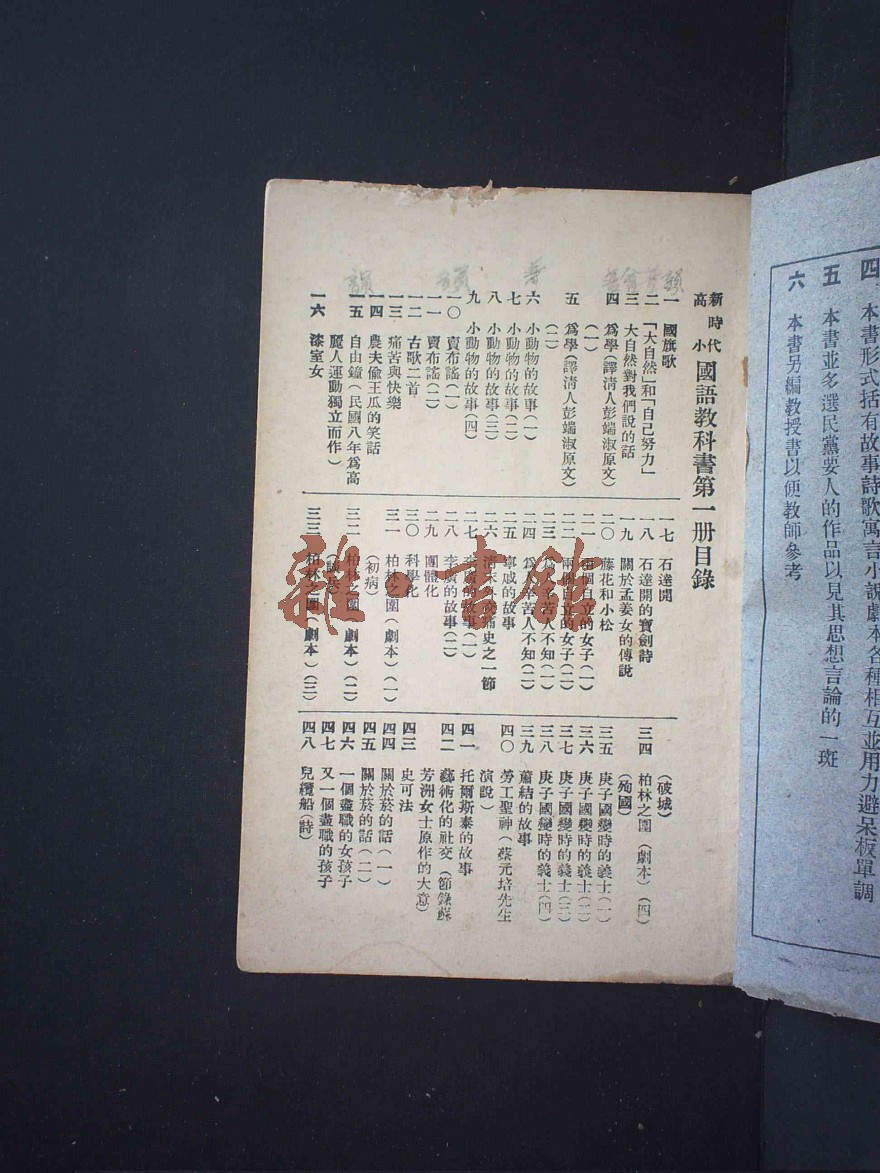 四 本書形式括有故事詩歌寓言小說劇本各種相互並用力避呆板單調
五 本書並多選民黨要人的作品以見其思想言論的一斑
六 本書另編教授書以便教師參考
新時代高小國語教科書第一册目錄
一 國旗歌
二 「大自然」和「自己努力」
三 大自然對我們說的話
四 爲學(譯淸人彭端淑原文)
(一)
五 爲學(譯淸人彭端淑原文)
(二)
六 小動物的故事(一)
七 小動物的故事(二)
八 小動物的故事(三)
九 小動物的故事(四)
一〇 賣布謠(一)
一一 賣布謠(二)
一二 古歌二首
一三 痛苦與快樂
一四 農夫偸王瓜的笑話
一五 自由鐘(民國八年爲高
麗人運動獨立而作)
一六 漆室女
一七 石達開
一八 石達開的寶劍詩
一九 關於孟姜女的傳說
二〇 藤花和小松
二一 兩個自立的女子(一)
二二 兩個自立的女子(二)
二三 爲人辛苦人不知(一)
二四 爲人辛苦人不知(二)
二五 寧戚的故事
二六 淸末外交痛史之一節
二七 李廣的故事(一)
二八 李廣的故事(二)
二九 團體化
三〇 科學化
三一 柏林之圍(劇本)(一)
(初病)
三二 柏林之圍(劇本)(二)
三三 柏林之圍(劇本)(三)
(破城)
三四 柏林之圍(劇本)(四)
(殉國)
三五 庚子國變時的義士(一)
三六 庚子國變時的義士(二)
三七 庚子國變時的義士(三)
三八 庚子國變時的義士(四)
三九 蕭結的故事
四〇 勞工神聖(蔡元培先生
演說)
四一 托爾斯泰的故事
四二 藝術化的社交(節錄蘇
芳洲女士原作的大意)
四三 史可法
四四 關於菸的話(一)
四五 關於菸的話(二)
四六 一個盡職的女孩子
四七 又一個盡職的孩子
四八 兒纜船(詩)
雜·書館